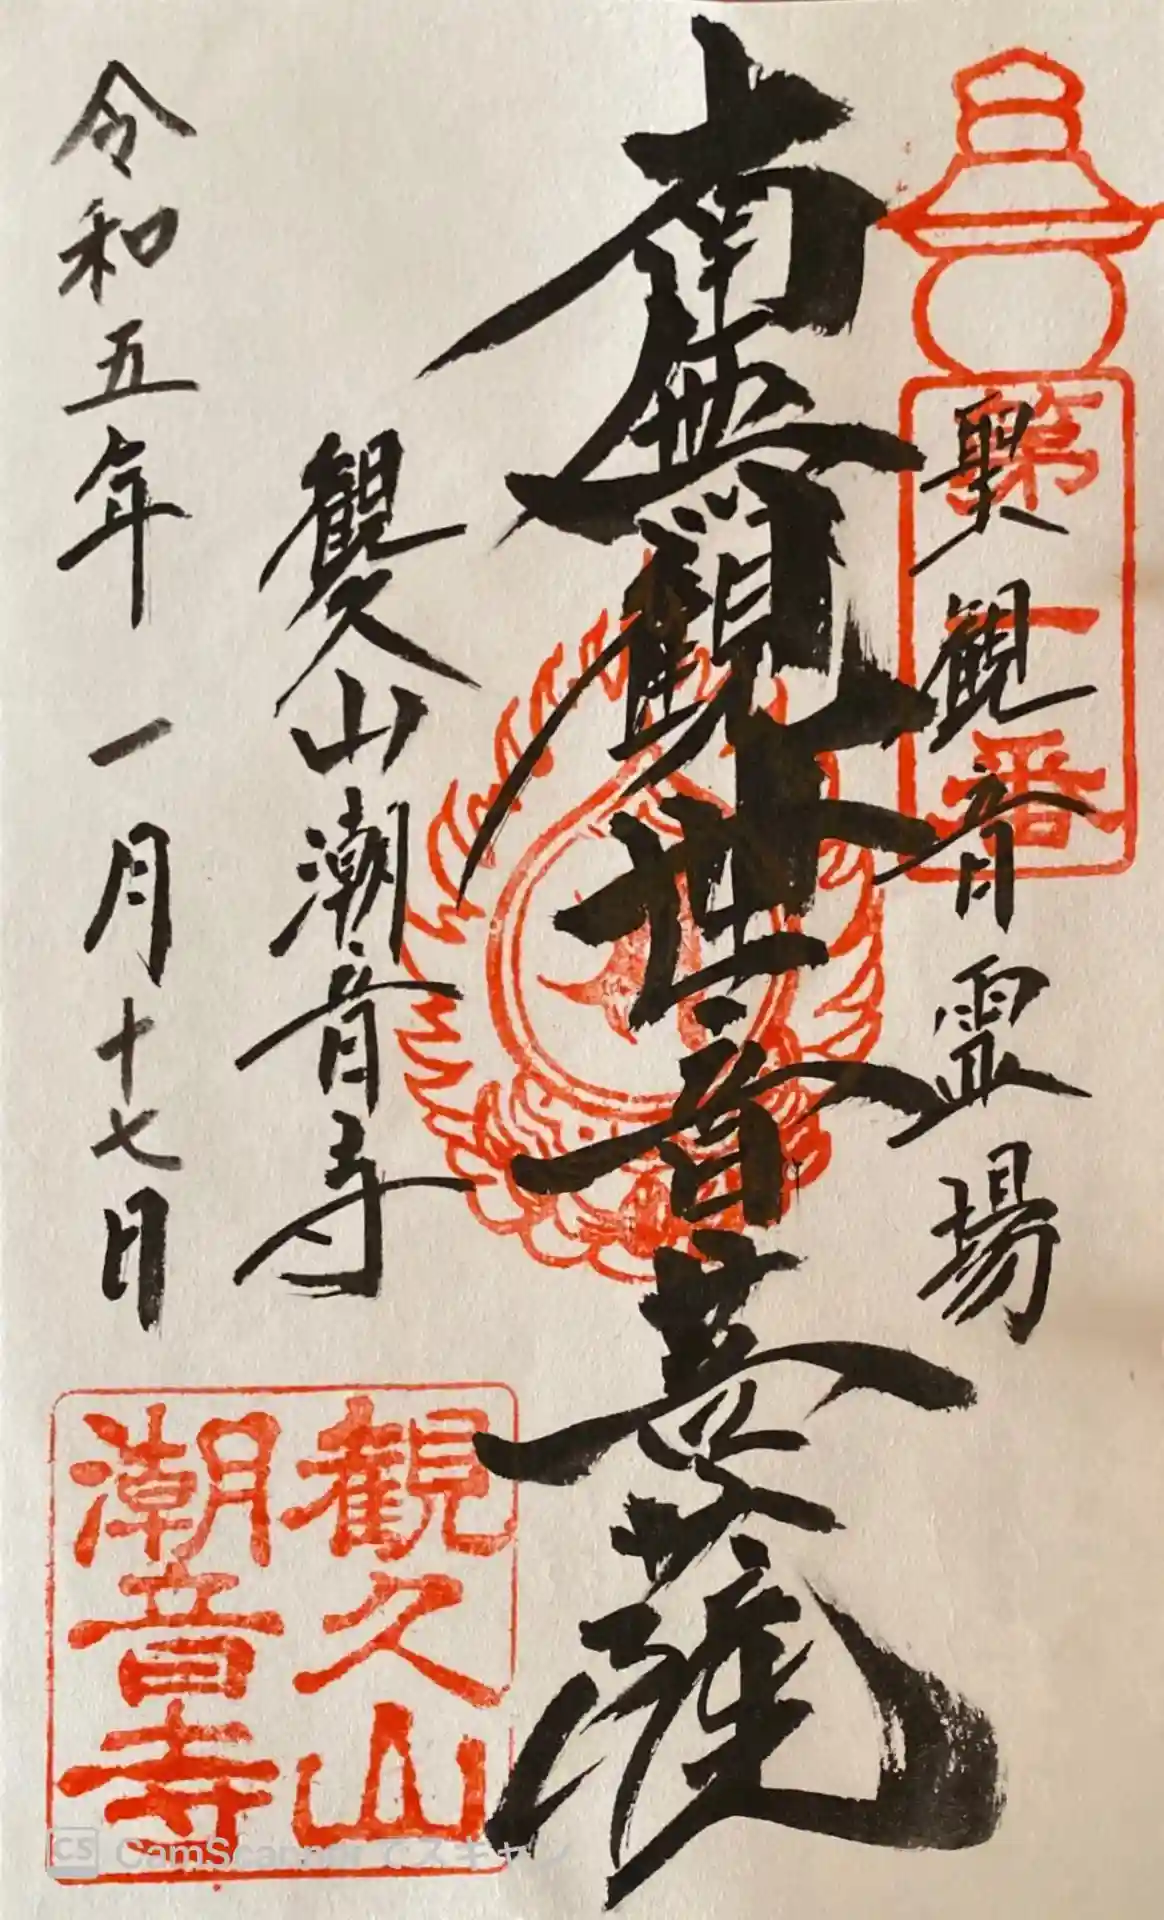 第一番
聖観音霊場
南無観世音菩薩
観久山潮音寺
令和五年一月十七日
観久山
潮音寺
CS CamScannerでスキャン